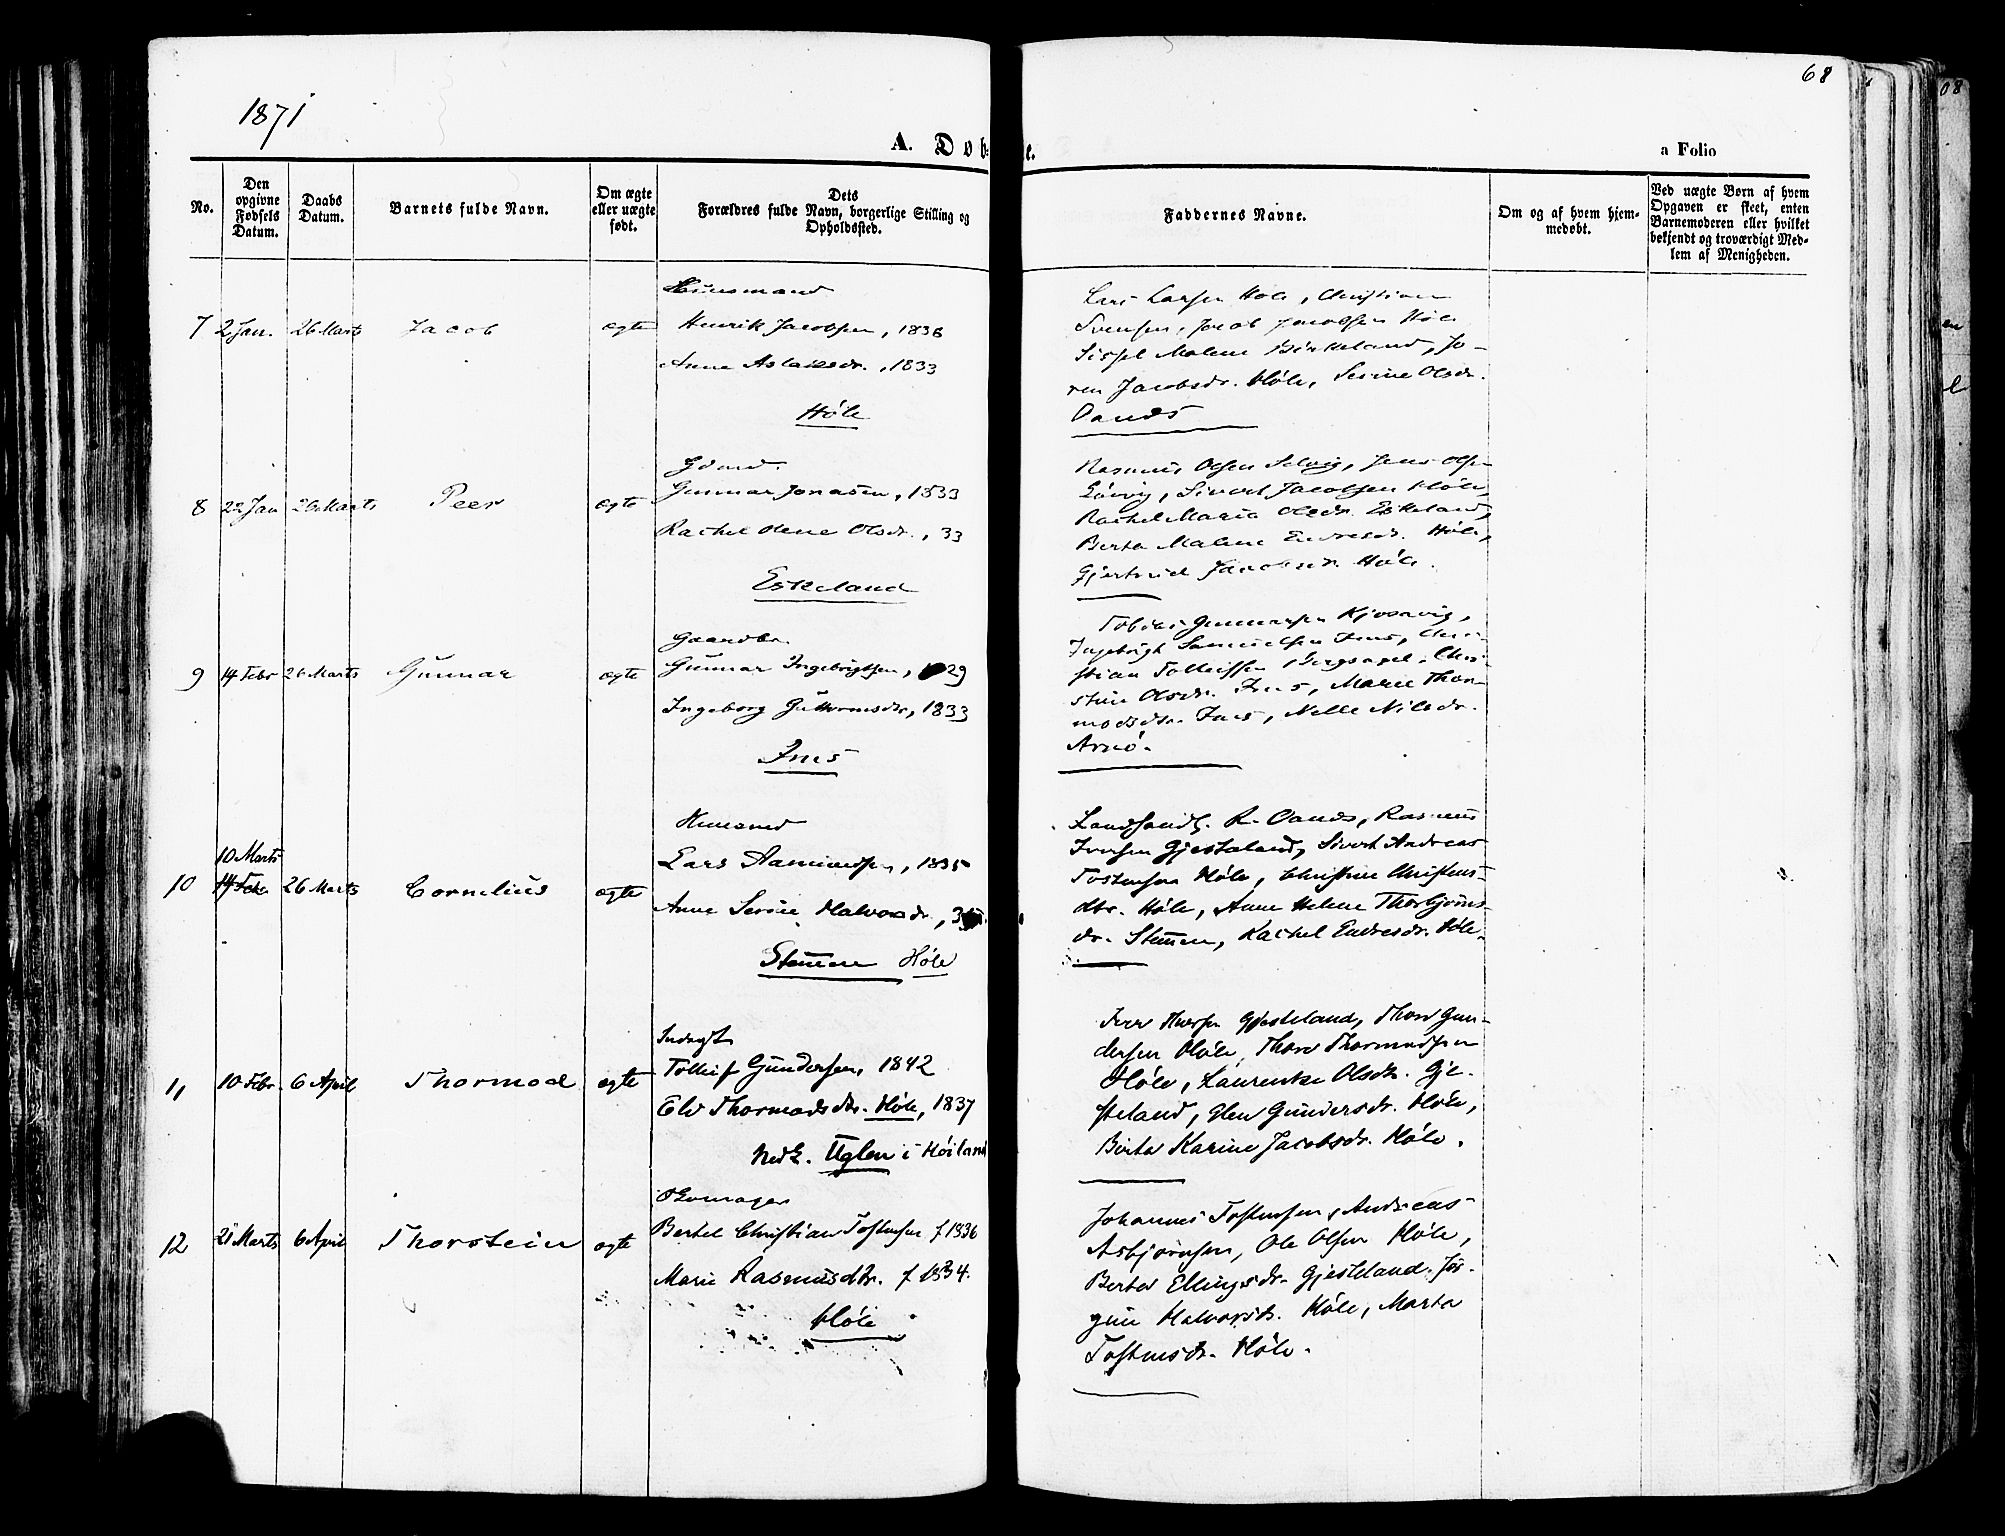 68
1871
A. Døbte.
a Folio
No.
Den opgivne Fødsels Datum.
Daabs Datum.
Barnets fulde Navn.
Om ægte eller uægte født.
Dets Forældres fulde Navn, borgerlige Stilling og Opholdssted.
Faddernes Navne.
Om og af hvem hjemmedøbt.
Ved uægte Børn af hvem Opgaven er skeet, enten Barnemoderen eller hvilket bekjendt og troværdigt Medlem af Menigheden.
7 2 Jan. 26 Marts Jacob ægte
Huusmand
Henrik Jacobsen, 1836
Anne Aslaksdr., 1833
Høle
Lars Larsen Høle, Christian
Svensen, Jacob Jacobsen Høle
Sissel Malene Birkeland, Jo-
ren Jacobsdr. Høle, Serine Olsdr.
Oanæs
8 22 Jan 26 Marts Peer ægte
Gdmd.
Gunnar Jonasen, 1833
Rachel Olene Olsdr., 33
Eskeland
Rasmus Olsen Selvig, Jens Olsen
Sivert Jacobsen Høle,
Rachel Maria Olsdr. Eskeland,
Berta Malene Endresdr. Høle,
Gjertrud Jacobsdr. Høle.
9 14 Febr 26 Marts Gunnar ægte
Gaardbr.
Gunnar Ingebrigtsen, 1829
Ingeborg Guttormsdr., 1833
Ims
Tobias Gunnarsen Kjosavig,
Ingebrigt Samuelsen Ims, Chri-
stian Tolleifsen Bergsagel, Chri-
stine Olsdr. Ims, Marie Thor-
modsdtr. Ims, Nelle Nilsdr.
Arnø.
10 10 Marts 14 Febr 26 Marts Cornelius ægte
Huusmd
Lars Aamundsen, 1835
Anne Serine Halvorsdr.,
Stemmen Høle
Landhandl. R. Oanæs, Rasmus
Iversen Gjesteland, Sivert Andreas
Tostensen Høle, Christine Christens-
dtr. Høle, Anne Helene Thorbjørns-
dr. Stemmen, Rachel Endresdr. Høle.
11 10 Febr. 6 April Thormod ægte
Inderst
Tolleif Gundersen, 1842
Eli Thormodsdtr. Høle, 1837
Uglen i Høiland
Iver Iversen Gjesteland, Thore Gun-
dersen Høle, Thore Thormodsen
Høle, Laurentze Olsdtr. Gje-
steland, Elen Gundersdr. Høle,
Berta Karine Jacobsdr. Høle.
12 21 Marts 6 April Thorstein ægte
Skomager
Bertel Christian Tostensen f 1836
Marie Rasmusdtr. f 1834.
Høle
Johannes Tostensen, Andreas
Asbjørnsen, Ole Olsen Høle,
Berta Ellingsdr. Gjesteland. Jør-
gine Halvorsdr. Høle, Marta
Tostensdr. Høle.